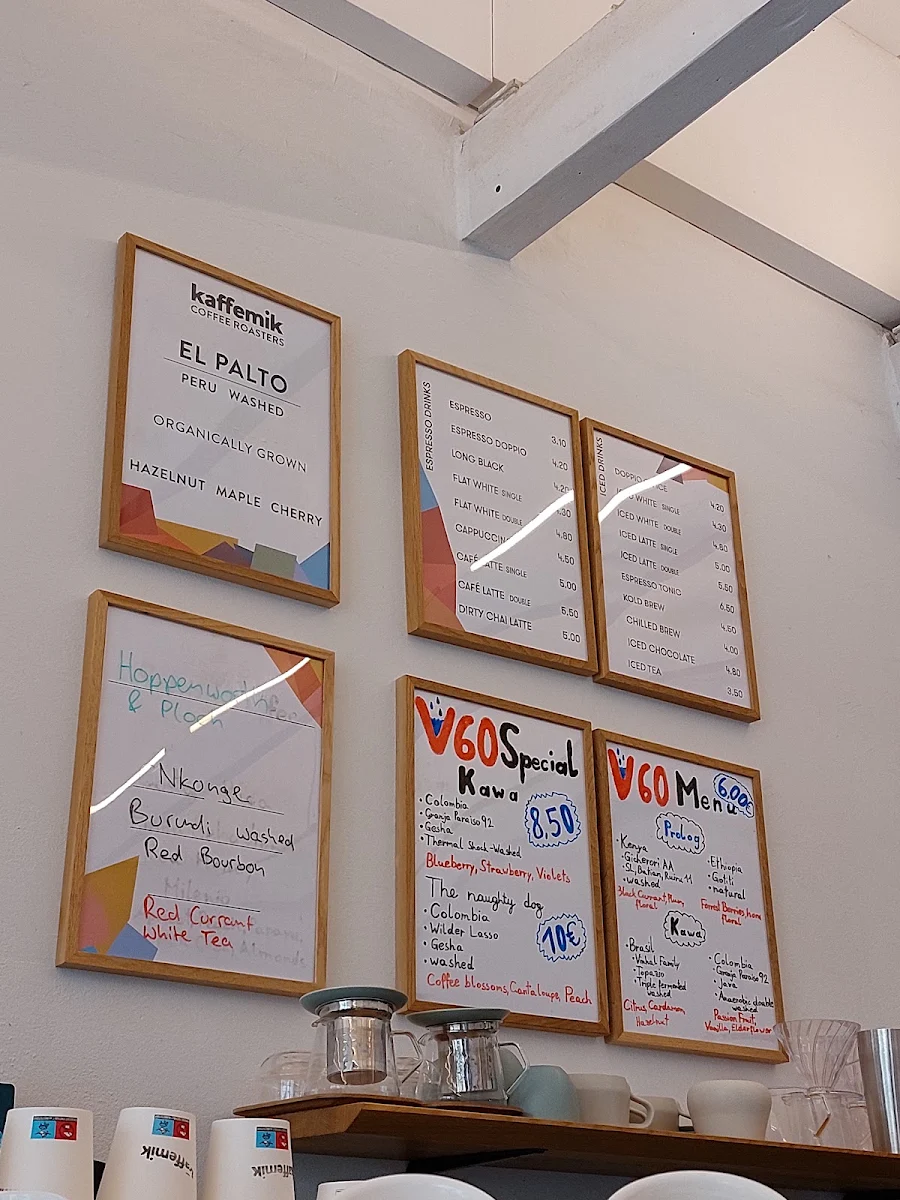 kaffemik
COFFEE ROASTERS
EL PALTO
PERU WASHED
ORGANICALLY GROWN
HAZELNUT MAPLE CHERRY
ESPRESSO DRINKS
ESPRESSO 3,10
ESPRESSO DOPPIO 4,20
LONG BLACK 4,20
FLAT WHITE SINGLE 4,30
FLAT WHITE DOUBLE 4,80
CAPPUCCINO 4,50
CAFÉ LATTE SINGLE 5,00
CAFÉ LATTE DOUBLE 5,50
DIRTY CHAI LATTE 5,00
ICED DRINKS
DOPPIO ICE 4,20
ICED WHITE SINGLE 4,30
ICED WHITE DOUBLE 4,80
ICED LATTE SINGLE 5,00
ICED LATTE DOUBLE 5,50
ESPRESSO TONIC 6,50
KOLD BREW 4,50
CHILLED BREW 4,00
ICED CHOCOLATE 4,80
ICED TEA 3,50
& Ploch
Burudi washed
Red Bourbon
Red Currant
White Tea
V60 Special
Kawa
8,50
• Colombia
• Granja Paraiso 92
• Gesha
• Thermal Shock-Washed
Blueberry, Strawberry, Violets
The naughty dog
10€
• Colombia
• Wilder Lasso
• Gesha
• washed
Coffee blossoms, Cantaloupe, Peach
V60 Menu
6,00€
Prolog
• Kenya
• Gicherori AA
• SL, Batian, Ruiru 11
• washed
Black Currant, Plum,
floral
• Ethiopia
• Gotiti
• natural
Forrest Berries,
floral
Kawa
• Brasil
• Vinhal Family
• Topazio
• Triple fermented
washed
Citrus, Cardamom,
Hazelnut
• Colombia
• Granja Paraiso 92
• Java
• Anaerobic double
washed
Passion Fruit,
Vanilla, Elderflower
kaffemik
kaffemik